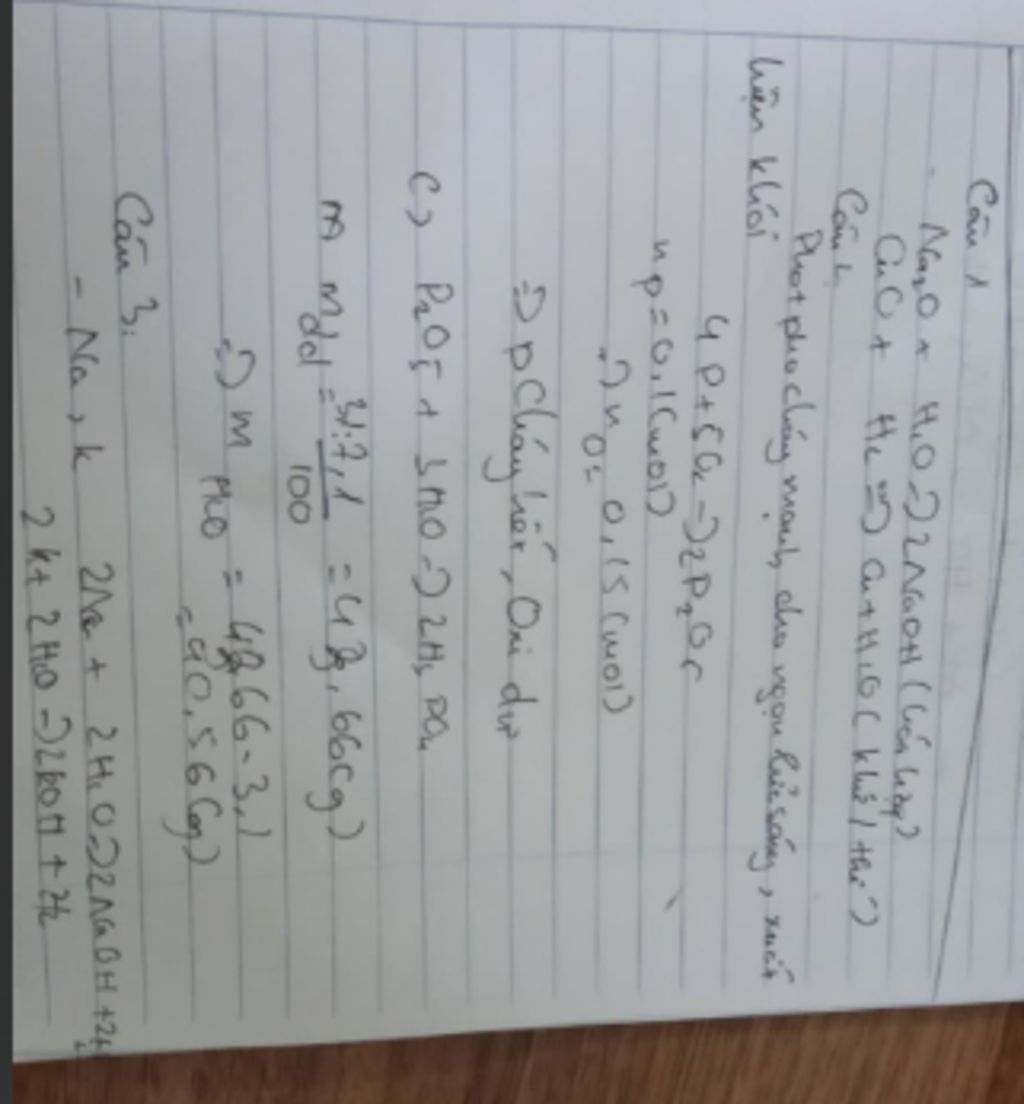 Câu 1
- Na2O + H2O => 2NaOH (hóa hợp)
CuO + H2 => Cu + H2O ( khử / thế )
Câu 2
Photpho cháy mạnh, cho ngọn lửa sáng, xuất
hiện khói
4P + 5O2 => 2P2O5
nP = 0,1 (mol)
=> nO = 0,15 (mol)
=> P cháy hết, Oxi dư
c) P2O5 + 3H2O => 2H3PO4
m mdd = 100 = 43,66 (g)
=> m H2O = 43,66 - 3,1
= 40,56 (g)
Câu 3:
- Na, K 2Na + 2H2O => 2NaOH +
2K + 2H2O => 2KOH + H2